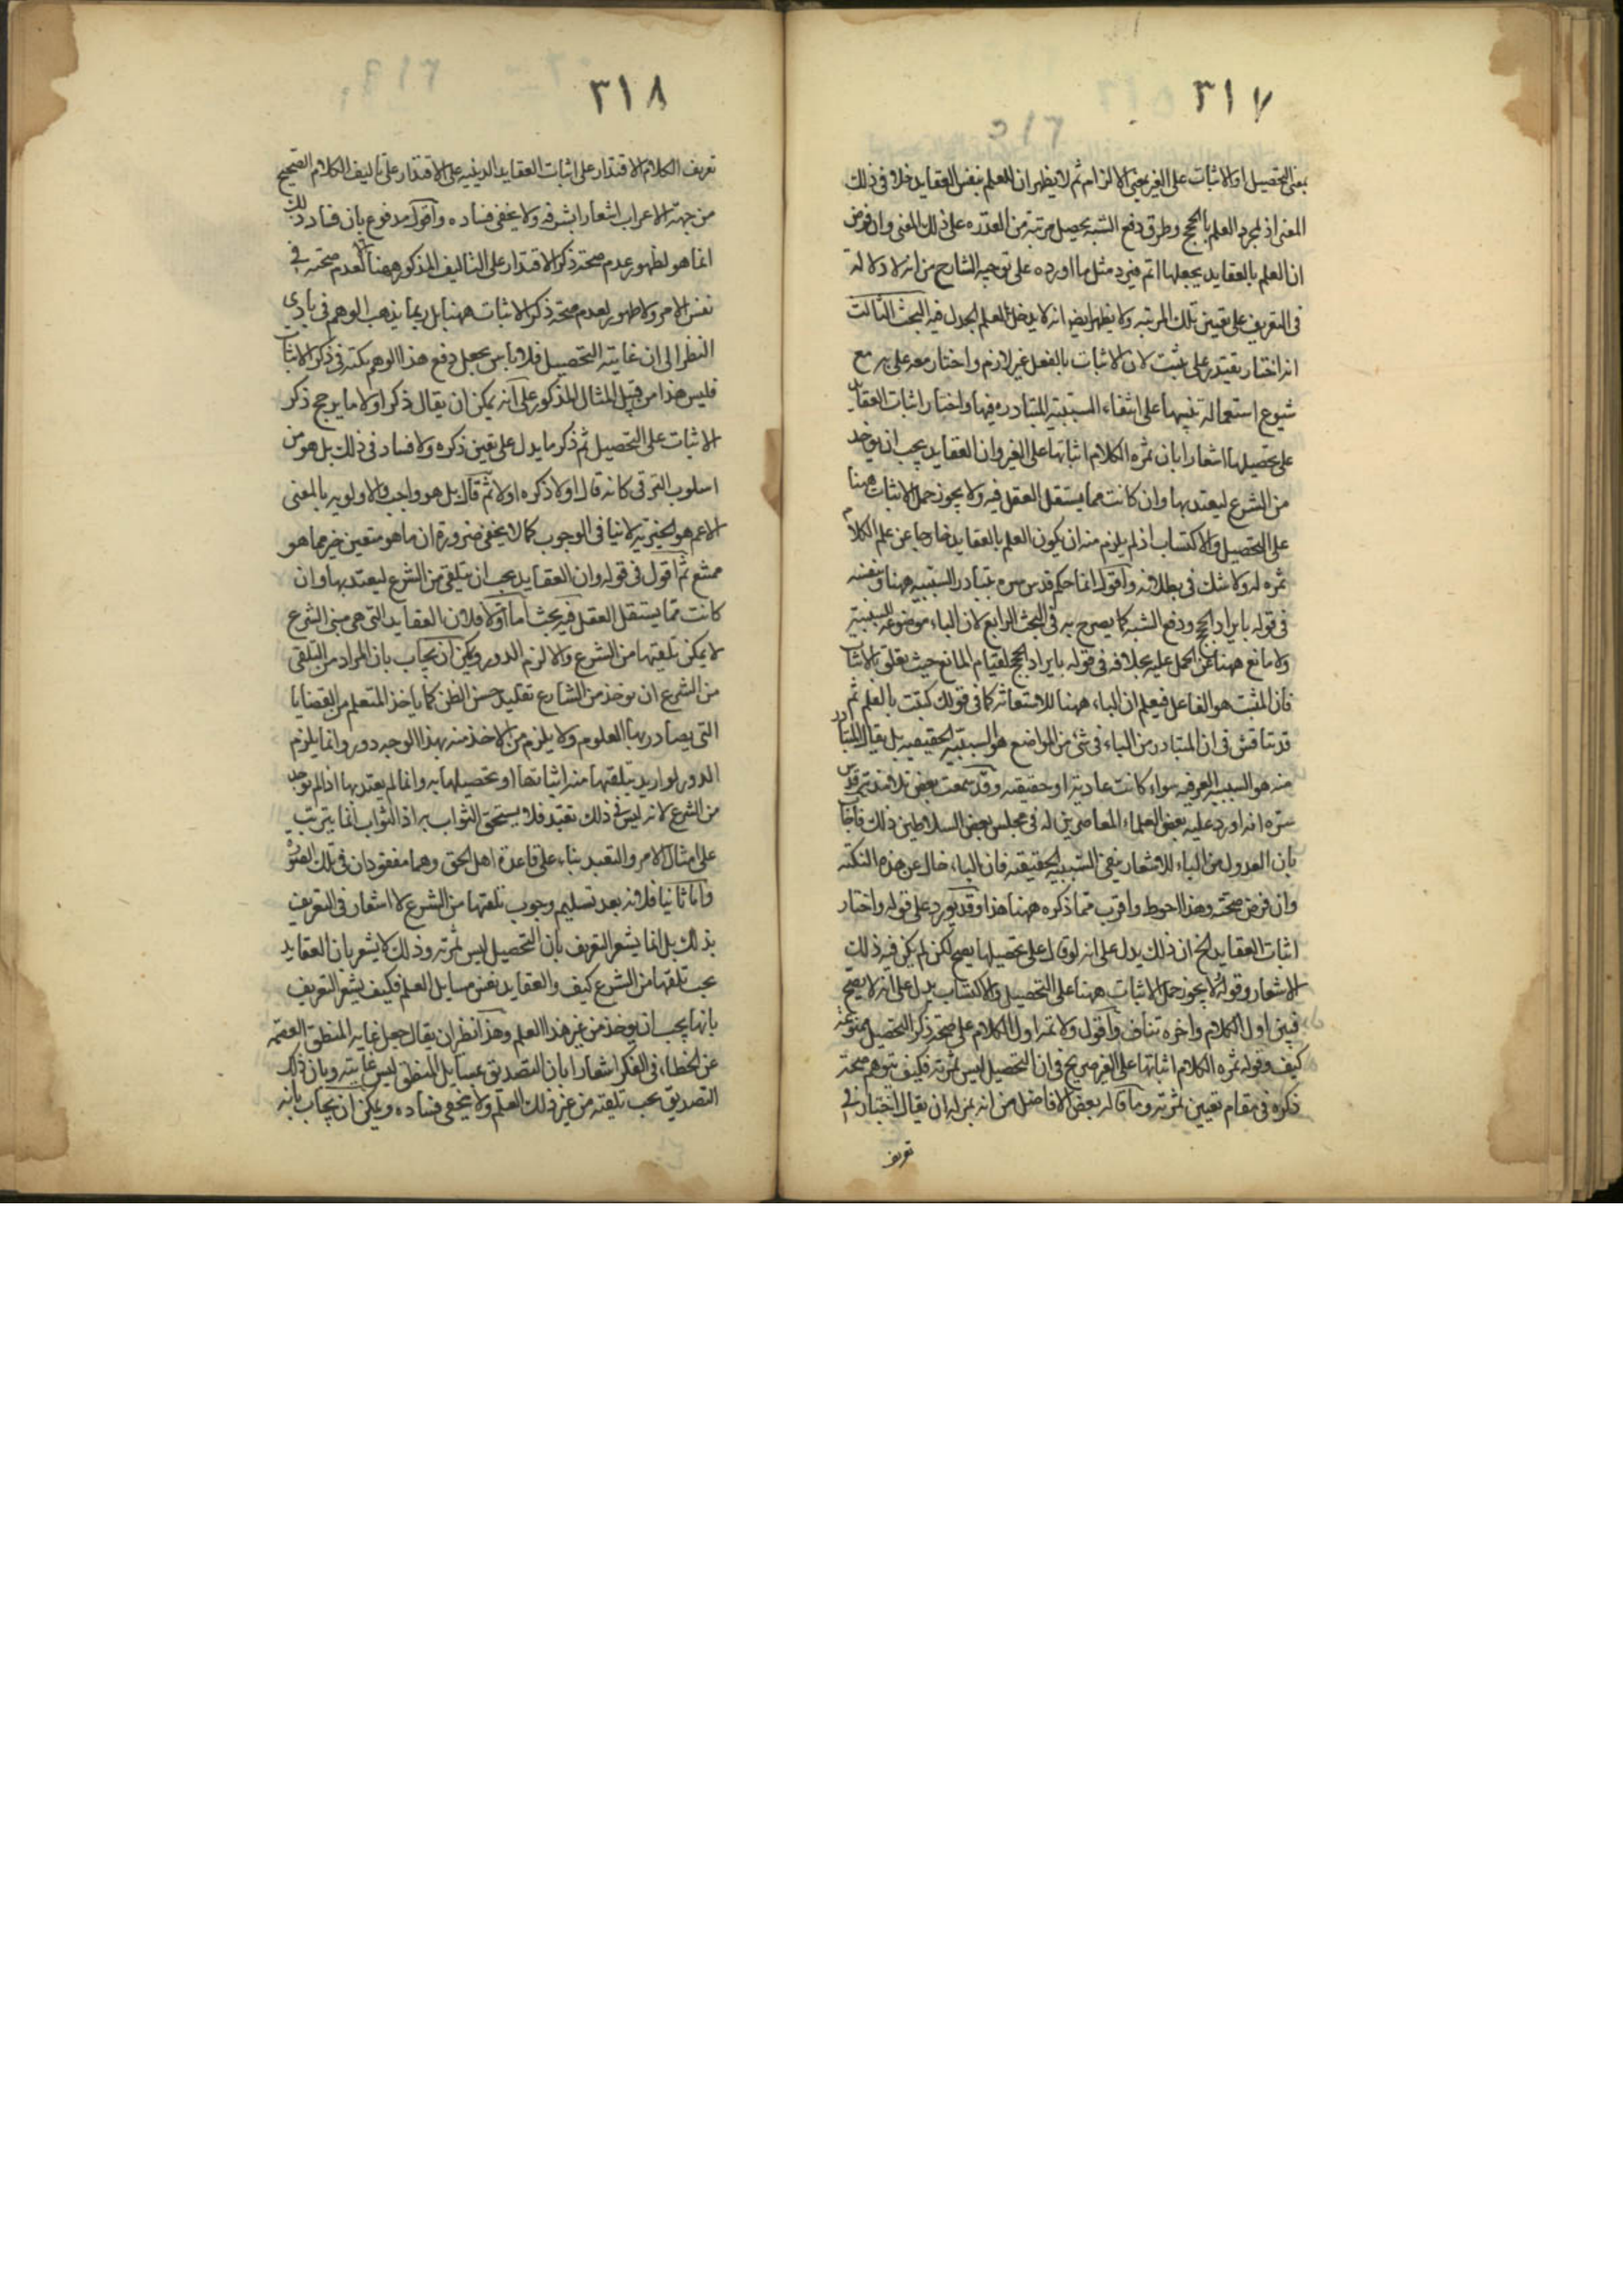 ٣١٧
بمعنى التحصيل او الاثبات على الغير بمعنى الالزام ثم لا يظهر ان للعلم بنفس العقايد دخلا فى ذلك
المعنى اذ لمجرد العلم بالحجج وطرق دفع الشبه يحصل مرتبة من القدره على ذلك المعنى وان فرض
ان العلم بالعقايد يجعلها اتم فيرد مثل ما اورده على توجيه الشارح من انه لا دلالة
فى التعريف على تعيين تلك المرتبه ولا يظهر ايضا انه لا يدخل العلم الجدل فيه البحث الثالث
انه اختار يقتدر على يثبت لان الاثبات بالفعل غير لازم واختار معه على به مع
شيوع استعماله تنبيها على انتفاء السببية المتبادره فيها واختار اثبات العقايد
على تحصيلها اشعارا بان ثمره الكلام اثباتها على الغير وان العقايد يجب ان يوخذ
من الشرع ليعتد بها وان كانت مما يستقل العقل فيه ولا يجوز حمل الاثبات ههنا
على التحصيل والاكتساب اذ لم يلزم منه ان يكون العلم بالعقايد خارجا عن علم الكلام
ثمره له ولا شك فى بطلانه واقول انما حكم قدس سره بتبادر السببيه ههنا ونفسه
فى قوله بايراد الحجج ودفع الشبه كما يصرح به فى البحث الرابع لان الباء موضوعه للسببية
ولا مانع ههنا عن الحمل عليه بخلافه فى قوله بايراد الحجج لقيام المانع حيث تعلق بالاثبات
فان المثبت هو الفاعل فيعلم ان الباء ههنا للاستعانة كما فى قولك كتبت بالقلم ثم
قد تناقش فى ان المتبادر من الباء فى شئ من المواضع هو السببيه الحقيقيه بل يقال المتبادر
منه هو السببيه العرفيه سواء كانت عادية او حقيقية وقد سمعت بعض تلامذته قدس
سره انه اورد عليه بعض العلماء المعاصرين له فى مجلس بعض السلاطين ذلك فاجاب
بان العدول عن الباء للاشعار بنفى السببيه الحقيقية فان الباء خال عن هذه النكته
وان فرض صحته وهذا احوط واقرب مما ذكره ههنا هذا وقد يورد على قوله واختار
اثبات العقايد الخ ان ذلك يدل على انه لو قال على تحصيلها يصح لكن لم يكن فيه ذلك
الاشعار وقوله لا يجوز حمل الاثبات ههنا على التحصيل والاكتساب يدل على انه لا يصح
فبين اول الكلام واخره تناف واقول دلالة اول الكلام على صحة ذكر التحصيل ممنوعة
كيف وقوله ثمره الكلام اثباتها على الغير صريح فى ان التحصيل ليس ثمرته فكيف يتوهم صحة
ذكره فى مقام تعيين ثمرته وما قاله بعض الافاضل من انه بمنزله ان يقال اختيار فى
تعريف
٣١٨
تعريف الكلام الاقتدار على اثبات العقايد الدينيه على الاقتدار على تاليف الكلام الصحيح
من جهة الاعراب اشعارا بشرفه ولا يخفى فساده واقول مدفوع بان فساد ذلك
انما هو لظهور عدم صحة ذكر الاقتدار على التاليف المذكور ههنا لا لعدم صحته فى
نفس الامر ولا ظهور لعدم صحة ذكر الاثبات ههنا بل ربما يذهب الوهم فى بادى
النظر الى ان غايته التحصيل فلا باس بجعل دفع هذا الوهم نكتة فى ذكر الاثبات
فليس هذا من قبيل المثال المذكور على انه يمكن ان يقال ذكر اولا ما يرجح ذكر
الاثبات على التحصيل ثم ذكر ما يدل على تعين ذكره ولا فساد فى ذلك بل هو من
اسلوب الترقى كانه قال اولا ذكره اولا ثم قال بل هو واجب والاولويه بالمعنى
الاعم هو الخيرية لا ينافى الوجوب كما لا يخفى ضرورة ان ما هو متعين خير مما هو
ممتنع ثم اقول فى قوله وان العقايد يجب ان يتلقى من الشرع ليعتد بها وان
كانت مما يستقل العقل فيه بحث اما اولا فلان العقايد التى هى مبنى الشرع
لا يمكن تلقيها من الشرع والا لزم الدور ويمكن ان يجاب بان المراد من التلقى
من الشرع ان يوخذ من الشارع تقليد حسن الظن كما ياخذ المتعلم من القضايا
التى يصادر بها العلوم ولا يلزم من الاخذ منه بهذا الوجه دور وانما يلزم
الدور لو اريد بتلقيها منه اثباتها او تحصيلها به وانما لم يعتد بها اذا لم توخذ
من الشرع لانه ليس فى ذلك تعبد فلا يستحق الثواب به اذ الثواب انما يترتب
على امتثال الامر والتعبد بناء على قاعدة اهل الحق وهما مفقودان فى تلك الصورة
واما ثانيا فلانه بعد تسليم وجوب تلقيها من الشرع لا اشعار فى التعريف
بذلك بل انما يشعر التعريف بان التحصيل ليس ثمرته وذلك لا يشعر بان العقايد
يجب تلقيها من الشرع كيف والعقايد نفس مسايل العلم فكيف يشعر التعريف
بانها يجب ان يوخذ من غير هذا العلم وهذا نظير ان يقال جعل غاية المنطق العصمة
عن الخطاء فى الفكر اشعارا بان التصديق بمسايل المنطق ليس غايته وبان ذلك
التصديق يجب تلقيه من غير ذلك العلم ولا يخفى فساده ويمكن ان يجاب بانه